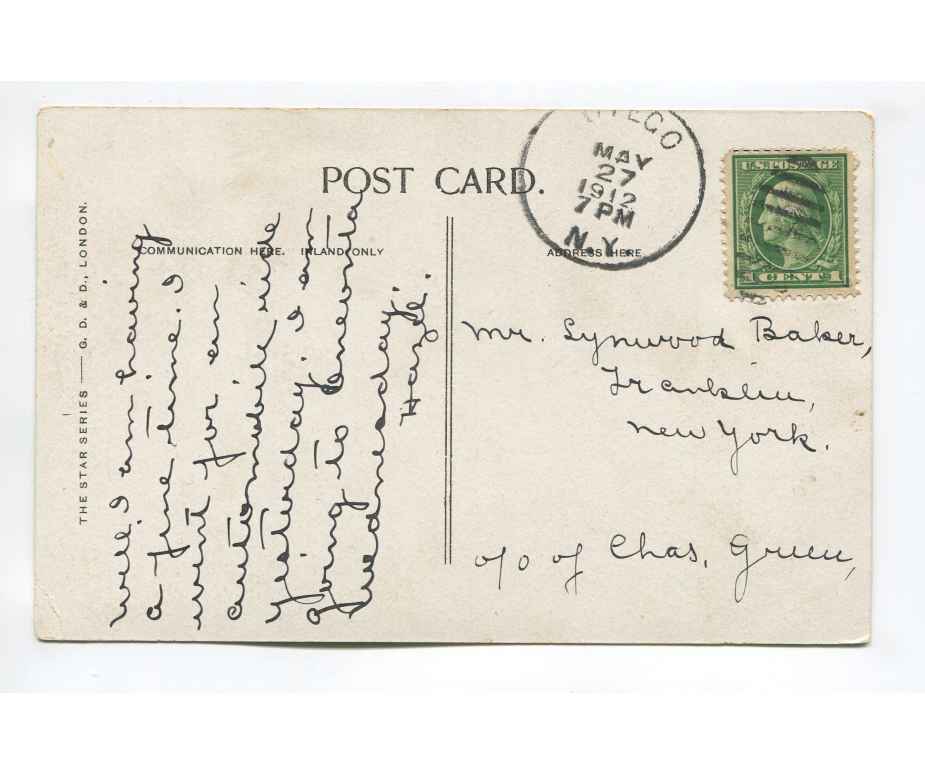 POST CARD.
COMMUNICATION HERE. INLAND ONLY
ADDRESS HERE
THE STAR SERIES — G. D. & D., LONDON.
OTEGO
MAY
27
1912
7 PM
N.Y.
U.S. POSTAGE
well I am having
a fine time. I
went for an
automobile ride
yesterday. I am
going to Oneonta
Wednesday.
Hazel.
Mr. Lynwood Baker,
Franklin,
New York.
c/o of Chas. Green,